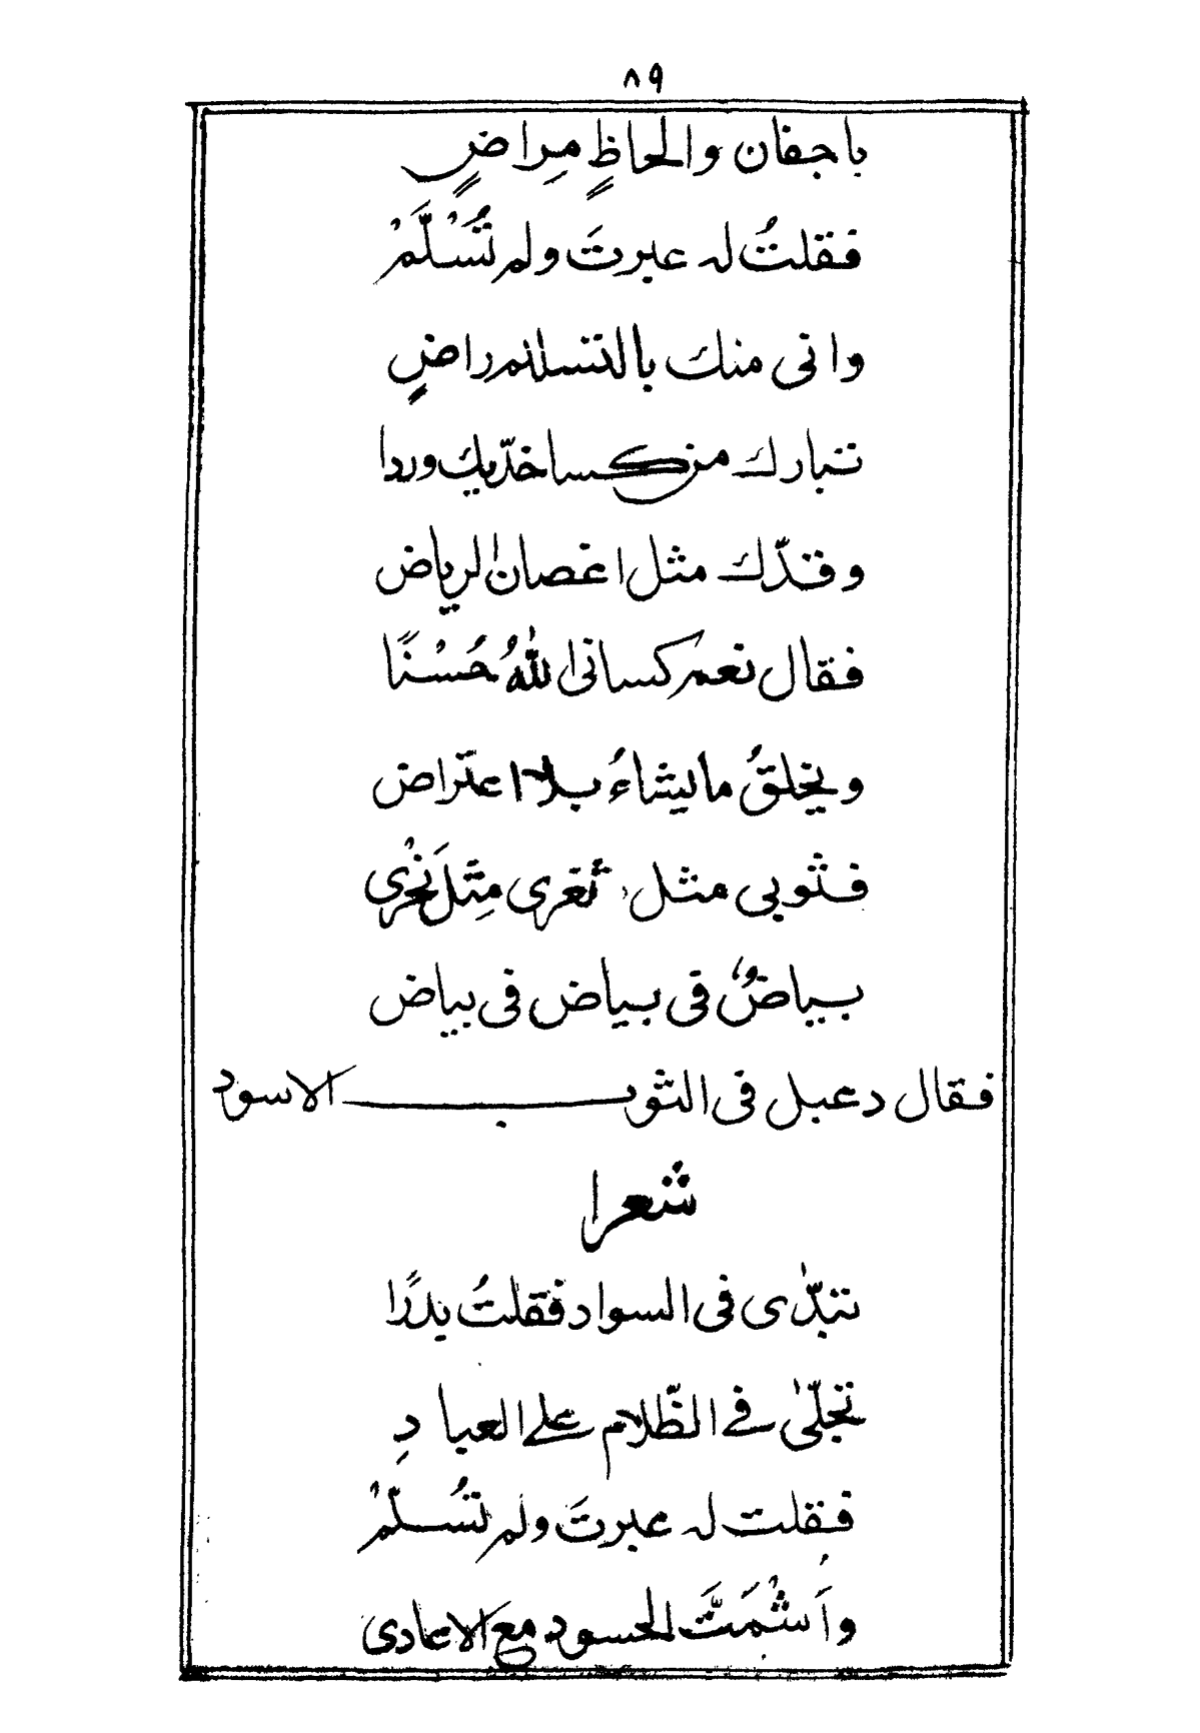 ٨٩
باجفان والحاظٍ مِراضٍ
فقلتُ له عبرتَ ولم تُسْلَّمْ
وانى منك بالتسليم راضٍ
تبارك من كسا خدّيك وردا
وقدّك مثل اغصان الرياض
فقال نعم كسانى اللهُ حُسْنًا
ويخلقُ مايشاءُ بلا اعتراض
فثوبى مثل ثغرى مِثلَ نحْرى
بياضٌ فى بياض فى بياض
فقال دعبل فى الثوب الاسود
شعرا
تبدّى فى السواد فقلتُ بدرًا
تجلّىٰ فے الظّلام علے العبادِ
فقلت له عبرتَ ولم تُسلّمْ
وَاَشْمَتَّ الحسود مع الاعادى